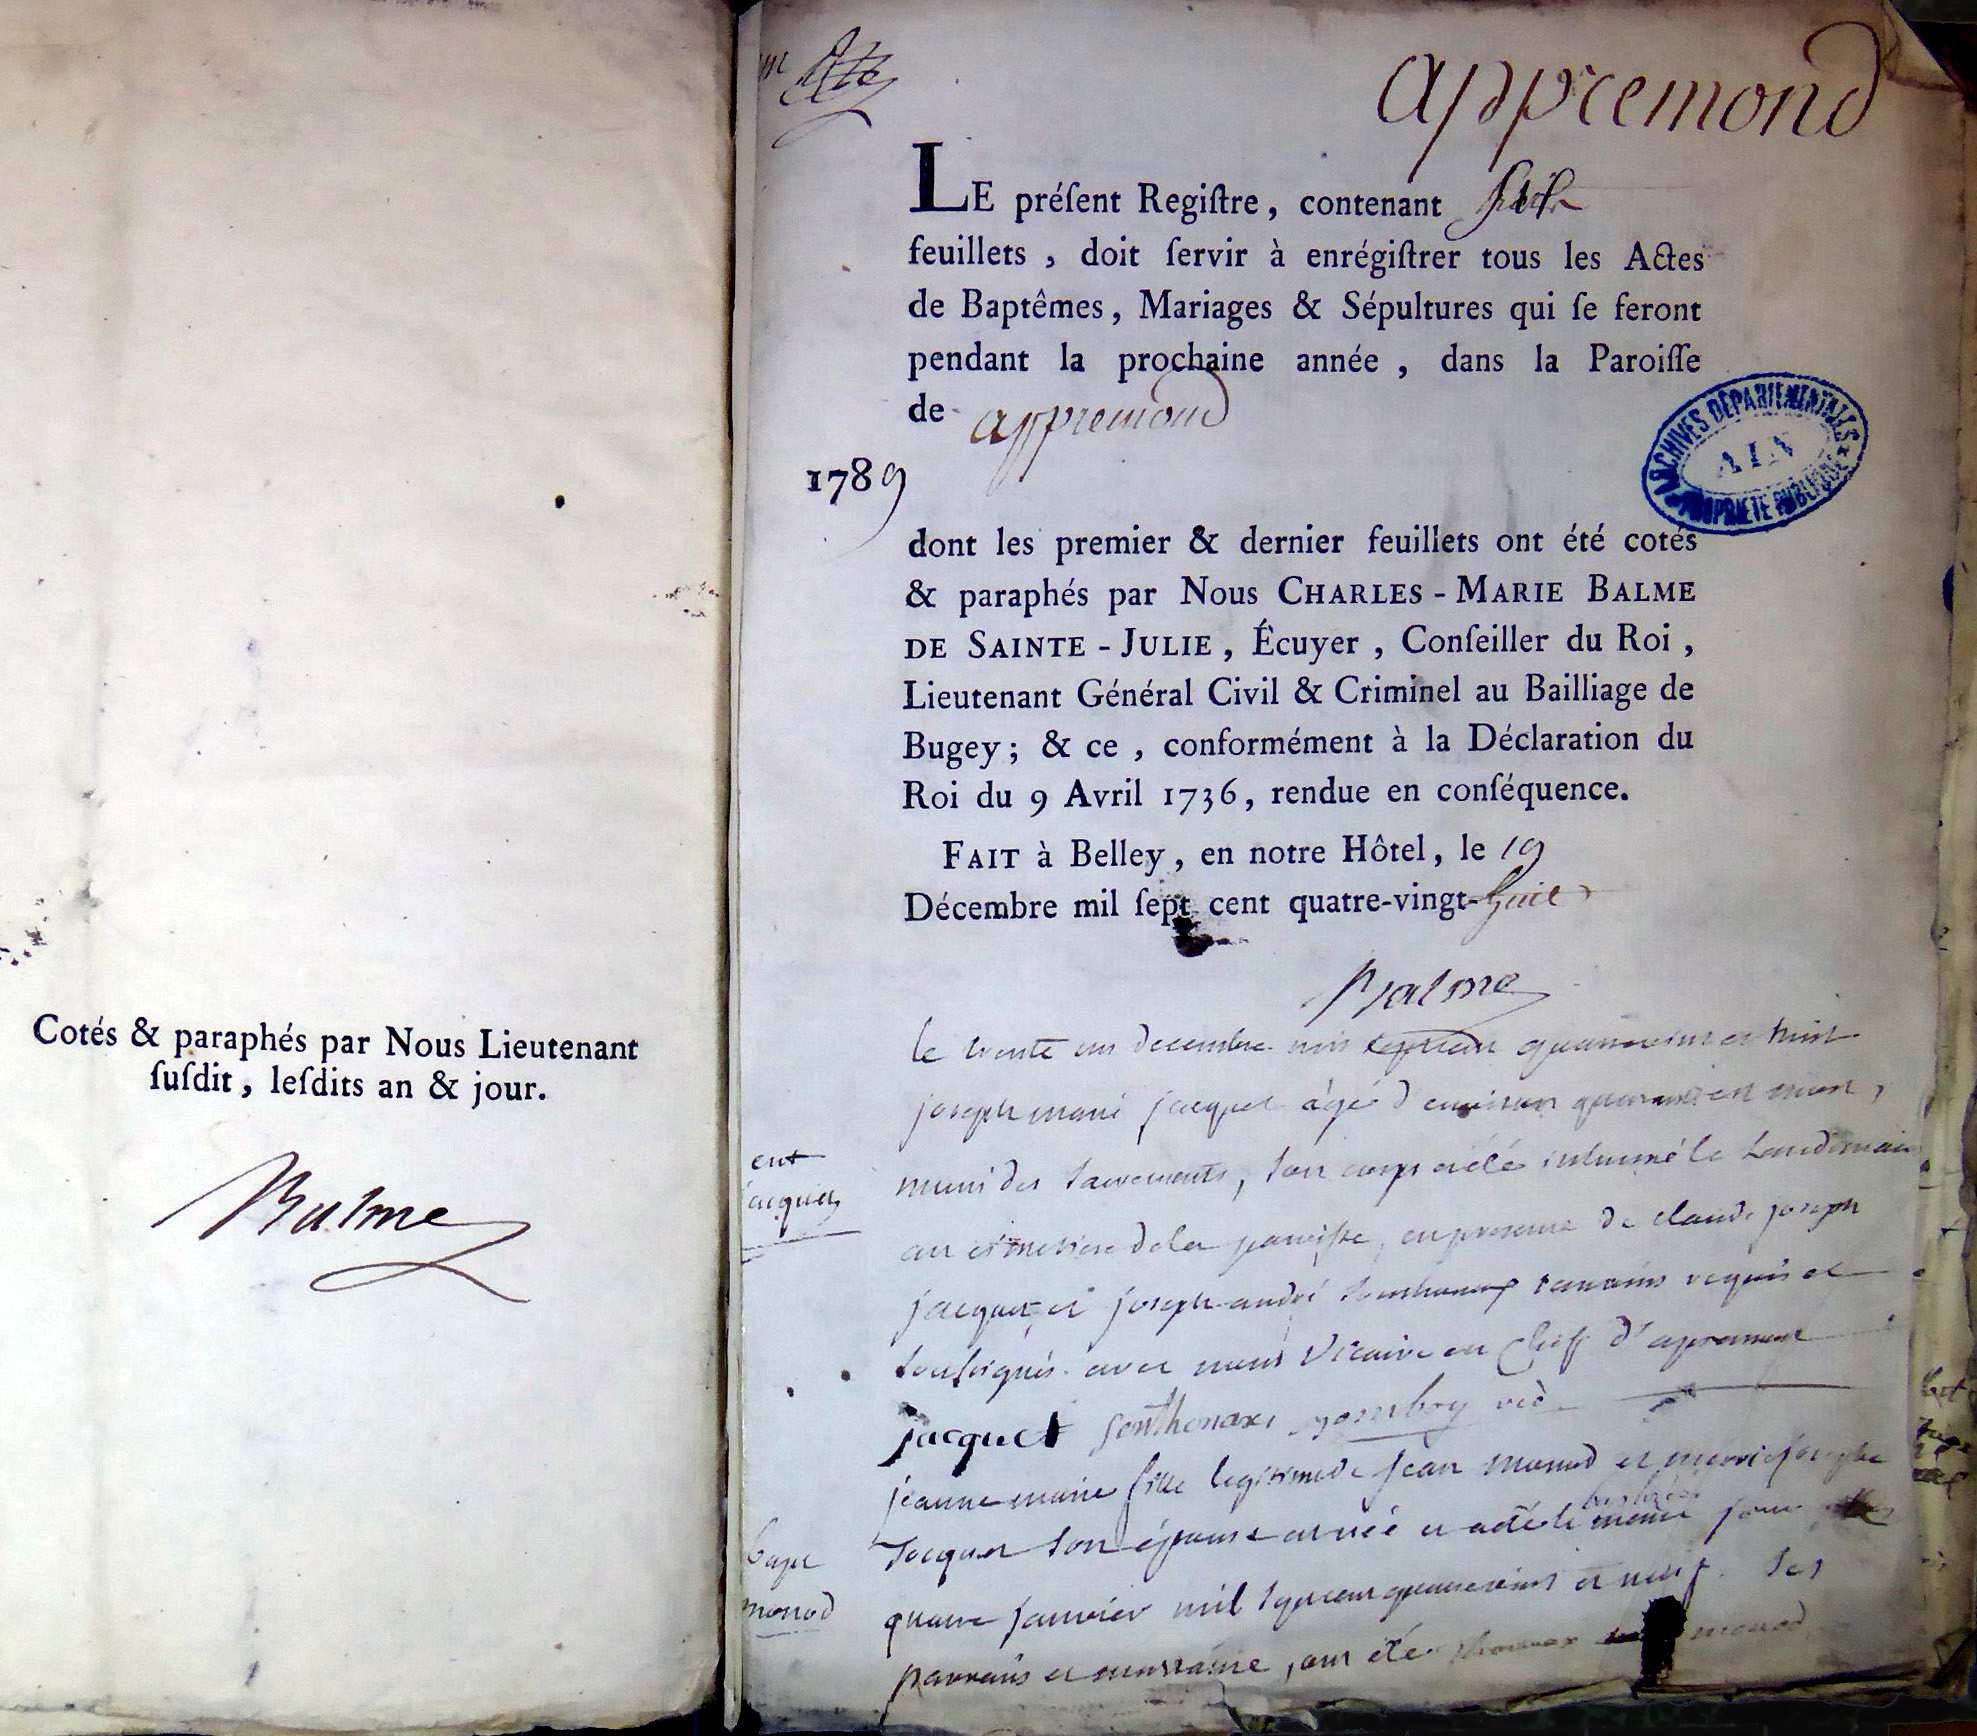 Cotés & paraphés par Nous Lieutenant
ſuſdit, leſdits an & jour.
Balme
appremond
LE préſent Regiſtre, contenant
feuillets, doit ſervir à enrégiſtrer tous les Actes
de Baptêmes, Mariages & Sépultures qui ſe feront
pendant la prochaine année, dans la Paroiſſe
de appremond
1789
ARCHIVES DÉPARTEMENTALES
AIN
PROPRIÉTÉ PUBLIQUE
dont les premier & dernier feuillets ont été cotés
& paraphés par Nous CHARLES-MARIE BALME
DE SAINTE-JULIE, Écuyer, Conſeiller du Roi,
Lieutenant Général Civil & Criminel au Bailliage de
Bugey; & ce, conformément à la Déclaration du
Roi du 9 Avril 1736, rendue en conſéquence.
FAIT à Belley, en notre Hôtel, le 19
Décembre mil ſept cent quatre-vingt-huit
Balme
le trente un decembre mil sept cent quatrevint et huit
joseph marie jacquet àgé d'environ est mort,
muni des sacrements, son corps a été inhumé le landemain
ent
acquet
au cimetiere de la paroisse, en presence de claude joseph
jacquet et joseph andré sonthonax temoins requis et
soussignés avec nous vicaire en cheff d'apremont
jacquet sonthonax gomboy vic.
jeanne marie fille legitime de jean monod et marie josephe
Jacquet son épouse est née et a été le meme jour
bapt
monod
quatre janvier mil sept cent quatrevint et neuf. Ses
parrains et marraine, ont été monod